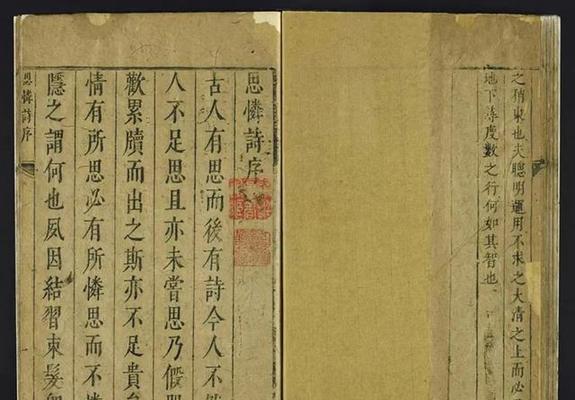 之稍東也夫聰明運用不求之大清之上而必
地下度數之行何如其智也
思憐詩序
古人有思而後有詩今人不
人不足思且亦未嘗思乃假
歡累牘而出之斯亦不足貴
情有所思必有所憐思而不
隱之謂何也夙因結習束髮
思憐詩序